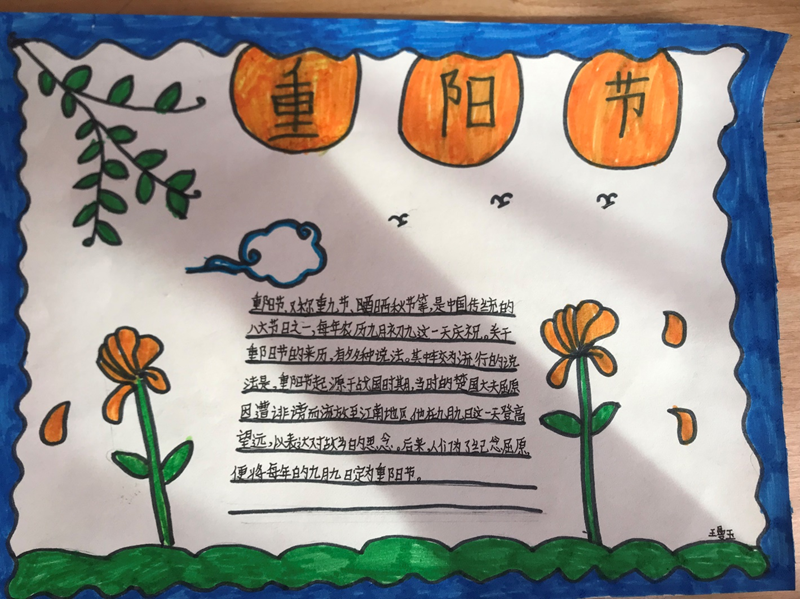 重阳节
重阳节,又称重九节、晒秋节等,是中国传统的
八大节日之一,每年农历九月初九这一天庆祝。关于
重阳节的来历,有多种说法。其中较为流行的说
法是,重阳节起源于战国时期,当时的楚国大夫屈原
因遭诽谤而流放至江南地区,他在九月九日这一天登高
望远,以表达对故乡的思念,后来,人们为了纪念屈原
便将每年的九月九日定为重阳节。